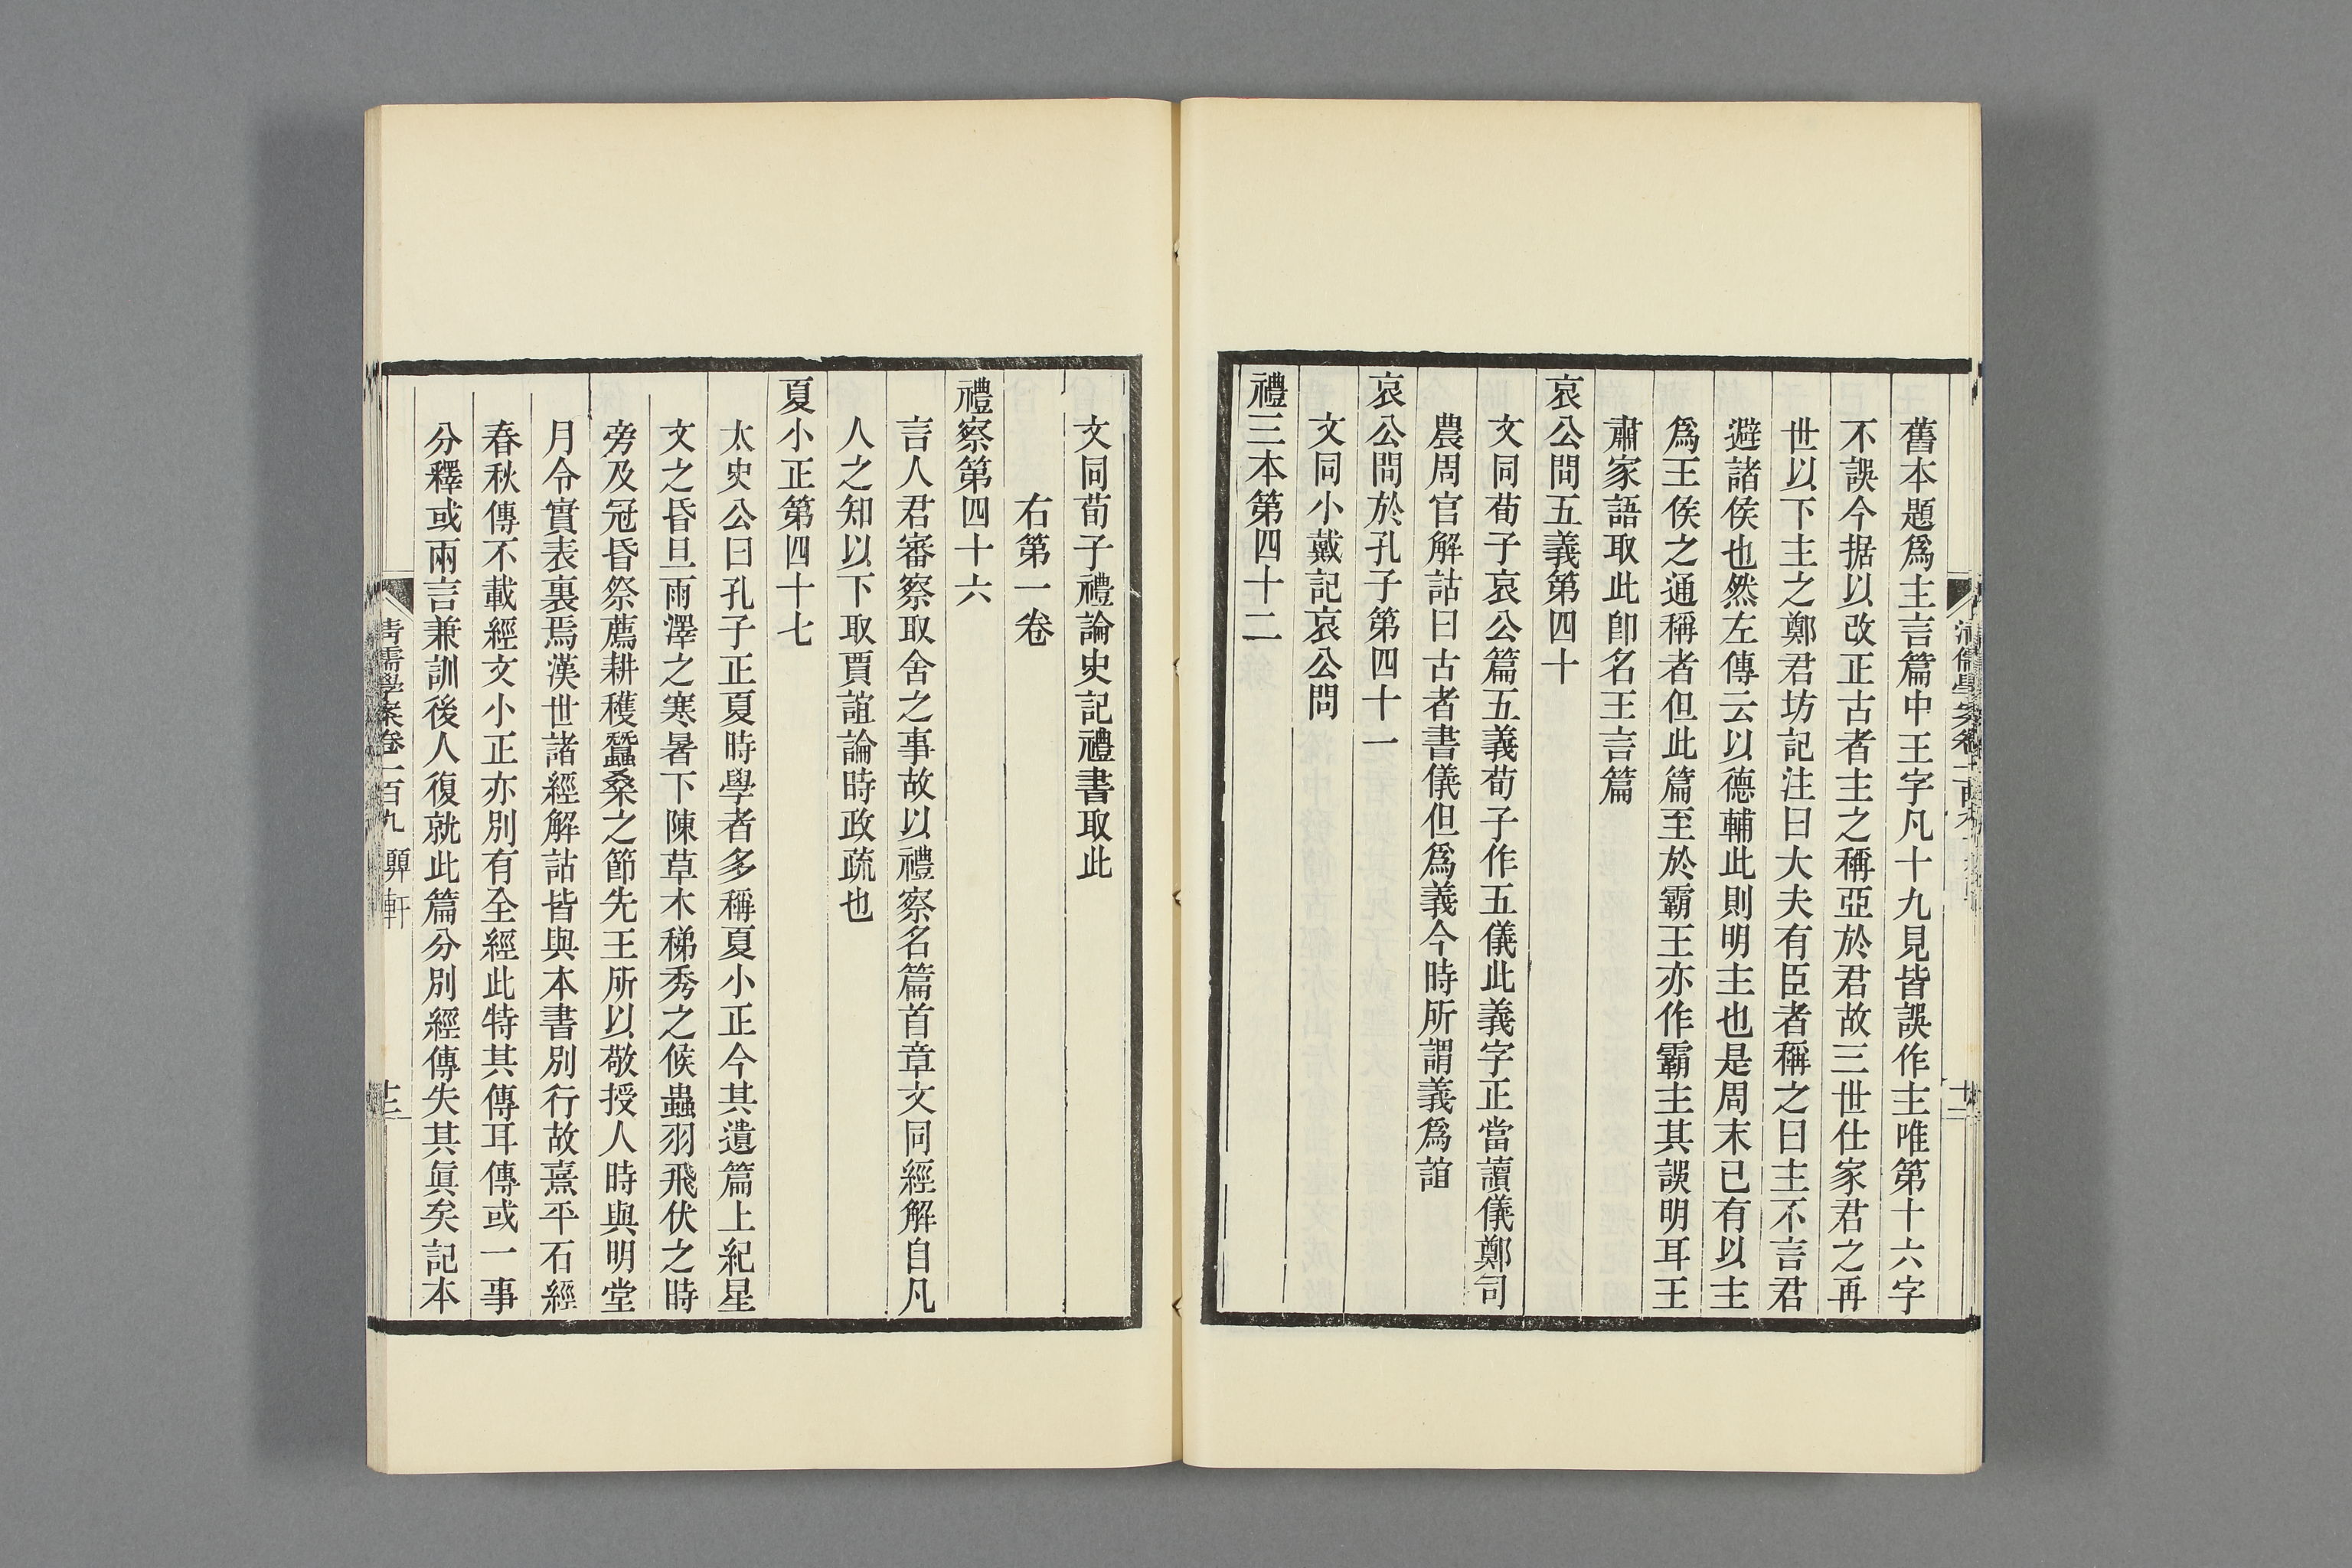 舊本題爲主言篇中王字凡十九見皆誤作主唯第十六字
不誤今据以改正古者主之稱亞於君故三世仕家君之再
世以下主之鄭君坊記注曰大夫有臣者稱之曰主不言君
避諸侯也然左傳云以德輔此則明主也是周末已有以主
爲王侯之通稱者但此篇至於霸王亦作霸主其誤明耳王
肅家語取此卽名王言篇
哀公問五義第四十
文同荀子哀公篇五義荀子作五儀此義字正當讀儀鄭司
農周官解詁曰古者書儀但爲義今時所謂義爲誼
哀公問於孔子第四十一
文同小戴記哀公問
禮三本第四十二
文同荀子禮論史記禮書取此
右第一卷
禮察第四十六
言人君審察取舍之事故以禮察名篇首章文同經解自凡
人之知以下取賈誼論時政疏也
夏小正第四十七
太史公曰孔子正夏時學者多稱夏小正今其遺篇上紀星
文之昏旦雨澤之寒暑下陳草木稊秀之候蟲羽飛伏之時
旁及冠昏祭薦耕穫蠶桑之節先王所以敬授人時與明堂
月令實表裏焉漢世諸經解詁皆與本書別行故熹平石經
春秋傳不載經文小正亦別有全經此特其傳耳傳或一事
分釋或兩言兼訓後人復就此篇分別經傳失其眞矣記本
清儒學案卷一百九 顨軒
十三